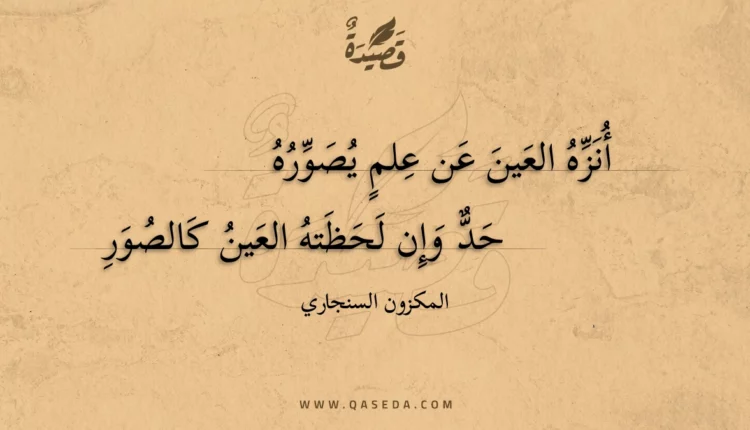 قَصِيدَةٌ
أُنَزِّهُ العَينَ عَن عِلمٍ يُصَوِّرُهُ
حَدٌّ وَإِن لَحَظَتهُ العَينُ كَالصُوَرِ
المكزون السنجاري
WWW.QASEDA.COM